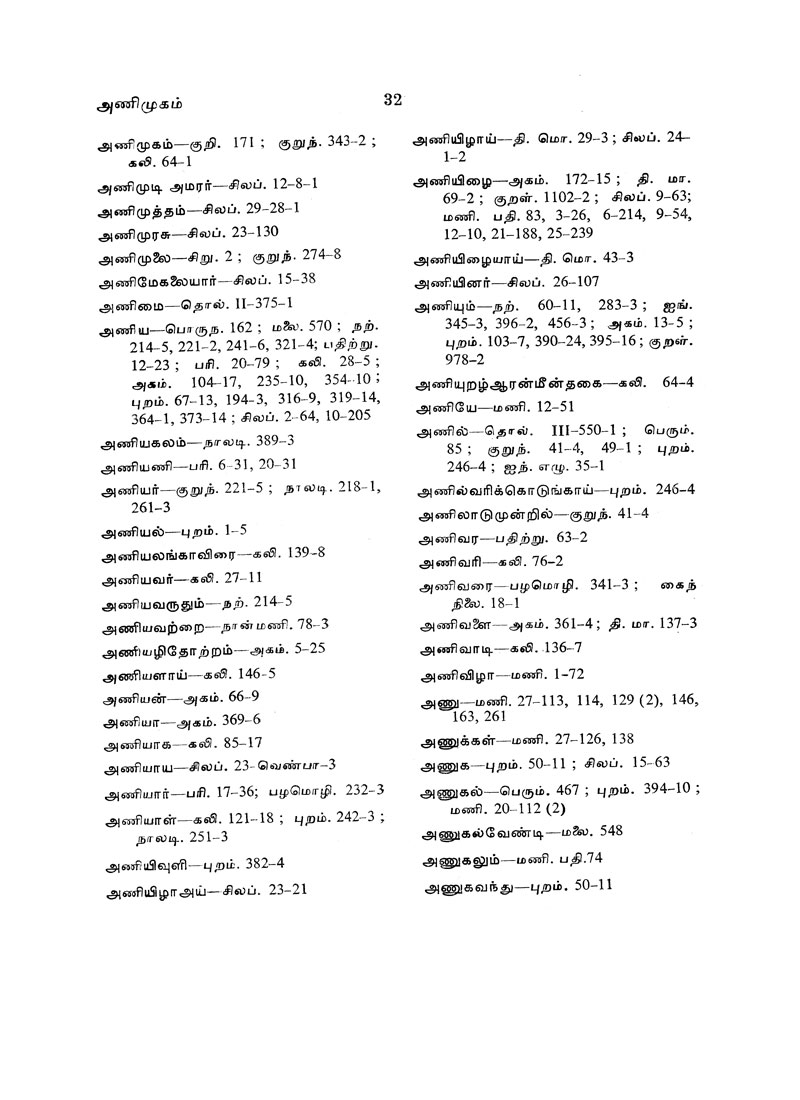 அணிமுகம்
32
அணிமுகம்—குறி. 171 ; குறுந். 343–2 ;
கலி. 64–1
அணிமுடி அமரர்—சிலப். 12–8–1
அணிமுத்தம்—சிலப். 29–28–1
அணிமுரசு—சிலப். 23–130
அணிமுலை—சிறு. 2 ; குறுந். 274–8
அணிமேகலையார்—சிலப். 15–38
அணிமை—தொல். II–375–1
அணிய—பொருந. 162 ; மலை. 570 ; நற்.
214–5, 221–2, 241–6, 321–4; பதிற்று.
12–23 ; பரி. 20–79 ; கலி. 28–5 ;
அகம். 104–17, 235–10, 354–10 ;
புறம். 67–13, 194–3, 316–9, 319–14,
364–1, 373–14 ; சிலப். 2–64, 10–205
அணியகலம்—நாலடி. 389–3
அணியணி—பரி. 6–31, 20–31
அணியர்—குறுந். 221–5 ; நாலடி. 218–1,
261–3
அணியல்—புறம். 1–5
அணியலங்காவிரை—கலி. 139–8
அணியவர்—கலி. 27–11
அணியவருதும்—நற். 214–5
அணியவற்றை—நான்மணி. 78–3
அணியழிதோற்றம்—அகம். 5–25
அணியளாய்—கலி. 146–5
அணியன்—அகம். 66–9
அணியா—அகம். 369–6
அணியாக—கலி. 85–17
அணியாய—சிலப். 23–வெண்பா–3
அணியார்—பரி. 17–36; பழமொழி. 232–3
அணியாள்—கலி. 121–18 ; புறம். 242–3 ;
நாலடி. 251–3
அணியிவுளி—புறம். 382–4
அணியிழாஅய்—சிலப். 23–21
அணியிழாய்—தி. மொ. 29–3 ; சிலப். 24–
1–2
அணியிழை—அகம். 172–15 ; தி. மா.
69–2 ; குறள். 1102–2 ; சிலப். 9–63;
மணி. பதி. 83, 3–26, 6–214, 9–54,
12–10, 21–188, 25–239
அணியிழையாய்—தி. மொ. 43–3
அணியினர்—சிலப். 26–107
அணியும்—நற். 60–11, 283–3 ; ஐங்.
345–3, 396–2, 456–3 ; அகம். 13–5 ;
புறம். 103–7, 390–24, 395–16 ; குறள்.
978–2
அணியுறழ்ஆரன்மீன்தகை—கலி. 64–4
அணியே—மணி. 12–51
அணில்—தொல். III–550–1 ; பெரும்.
85 ; குறுந். 41–4, 49–1 ; புறம்.
246–4 ; ஐந். எழு. 35–1
அணில்வரிக்கொடுங்காய்—புறம். 246–4
அணிலாடுமுன்றில்—குறுந். 41–4
அணிவர—பதிற்று. 63–2
அணிவரி—கலி. 76–2
அணிவரை—பழமொழி. 341–3 ; கைந்
நிலை. 18–1
அணிவளை—அகம். 361–4 ; தி. மா. 137–3
அணிவாடி—கலி. 136–7
அணிவிழா—மணி. 1–72
அணு—மணி. 27–113, 114, 129 (2), 146,
163, 261
அணுக்கள்—மணி. 27–126, 138
அணுக—புறம். 50–11 ; சிலப். 15–63
அணுகல்—பெரும். 467 ; புறம். 394–10 ;
மணி. 20–112 (2)
அணுகல்வேண்டி—மலை. 548
அணுகலும்—மணி. பதி.74
அணுகவந்து—புறம். 50–11